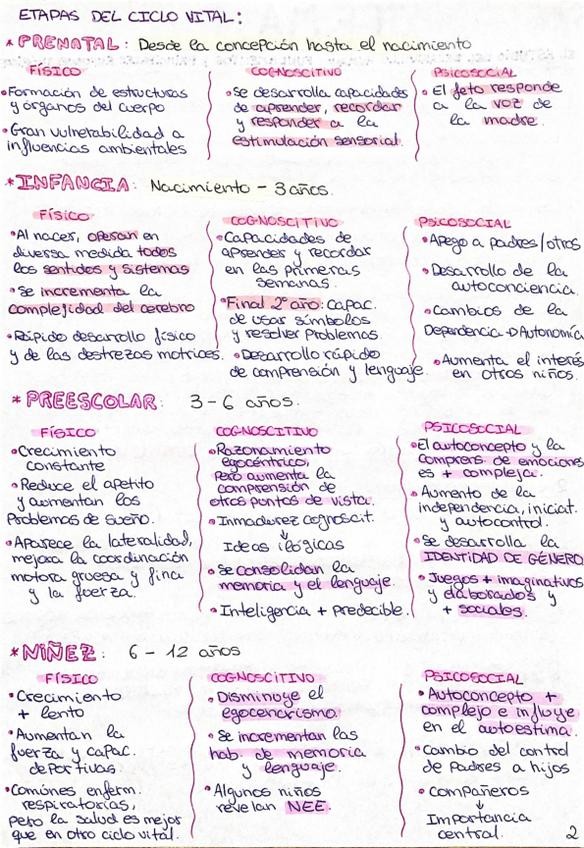 ETAPAS DEL CICLO VITAL:
* PRENATAL: Desde la concepción hasta el nacimiento
FÍSICO
•Formación de estructuras
y órganos del cuerpo
•Gran vulnerabilidad a
influencias ambientales
COGNOSCITIVO
•Se desarrolla capacidades
de aprender, recordar
y responder a la
estimulación sensorial.
PSICOSOCIAL
•El feto responde
a la voz de
la madre.
*INFANCIA: Nacimiento - 3 años.
FÍSICO
•Al nacer, operan en
diversa medida todos
los sentidos y sistemas
•Se incrementa la
complejidad del cerebro
•Rápido desarrollo físico
y de las destrezas motrices.
COGNOSCITIVO
•Capacidades de
aprender y recordar
en las primeras
semanas.
•Final 2º año: capac.
de usar símbolos
y resolver problemas.
•Desarrollo rápido
de comprensión y lenguaje.
PSICOSOCIAL
•Apego a padres/otros
•Desarrollo de la
autoconciencia.
•Cambios de la
Dependencia→Autonomía
•Aumenta el interés
en otros niños.
*PREESCOLAR: 3-6 años.
FÍSICO
•Crecimiento
constante
•Reduce el apetito
y aumentan los
problemas de sueño.
•Aparece la lateralidad,
mejora la coordinación
motora gruesa y fina
y la fuerza.
COGNOSCITIVO
•Razonamiento
egocéntrico,
pero aumenta la
comprensión de
otros puntos de vista.
•Inmadurez cognoscit.
↓
Ideas ilógicas
•Se consolidan la
memoria y el lenguaje.
•Inteligencia + predecible.
PSICOSOCIAL
•El autoconcepto y la
comprens. de emociones
es + compleja.
•Aumento de la
independencia, iniciat.
y autocontrol.
•Se desarrolla la
IDENTIDAD DE GÉNERO
•Juegos + imaginativos
y elaborados y
+ sociales.
*NIÑEZ: 6-12 años
FÍSICO
•Crecimiento
+ lento
•Aumentan la
fuerza y capac.
deportivas
•Comúnes enferm.
respiratorias,
pero la salud es mejor
que en otro ciclo vital.
COGNOSCITIVO
•Disminuye el
egocentrismo.
•Se incrementan las
hab. de memoria
y lenguaje.
•Algunos niños
revelan NEE.
PSICOSOCIAL
•Autoconcepto +
complejo e influye
en el autoestima.
•Cambio del control
de padres a hijos
•Compañeros
↓
Importancia
central.
2